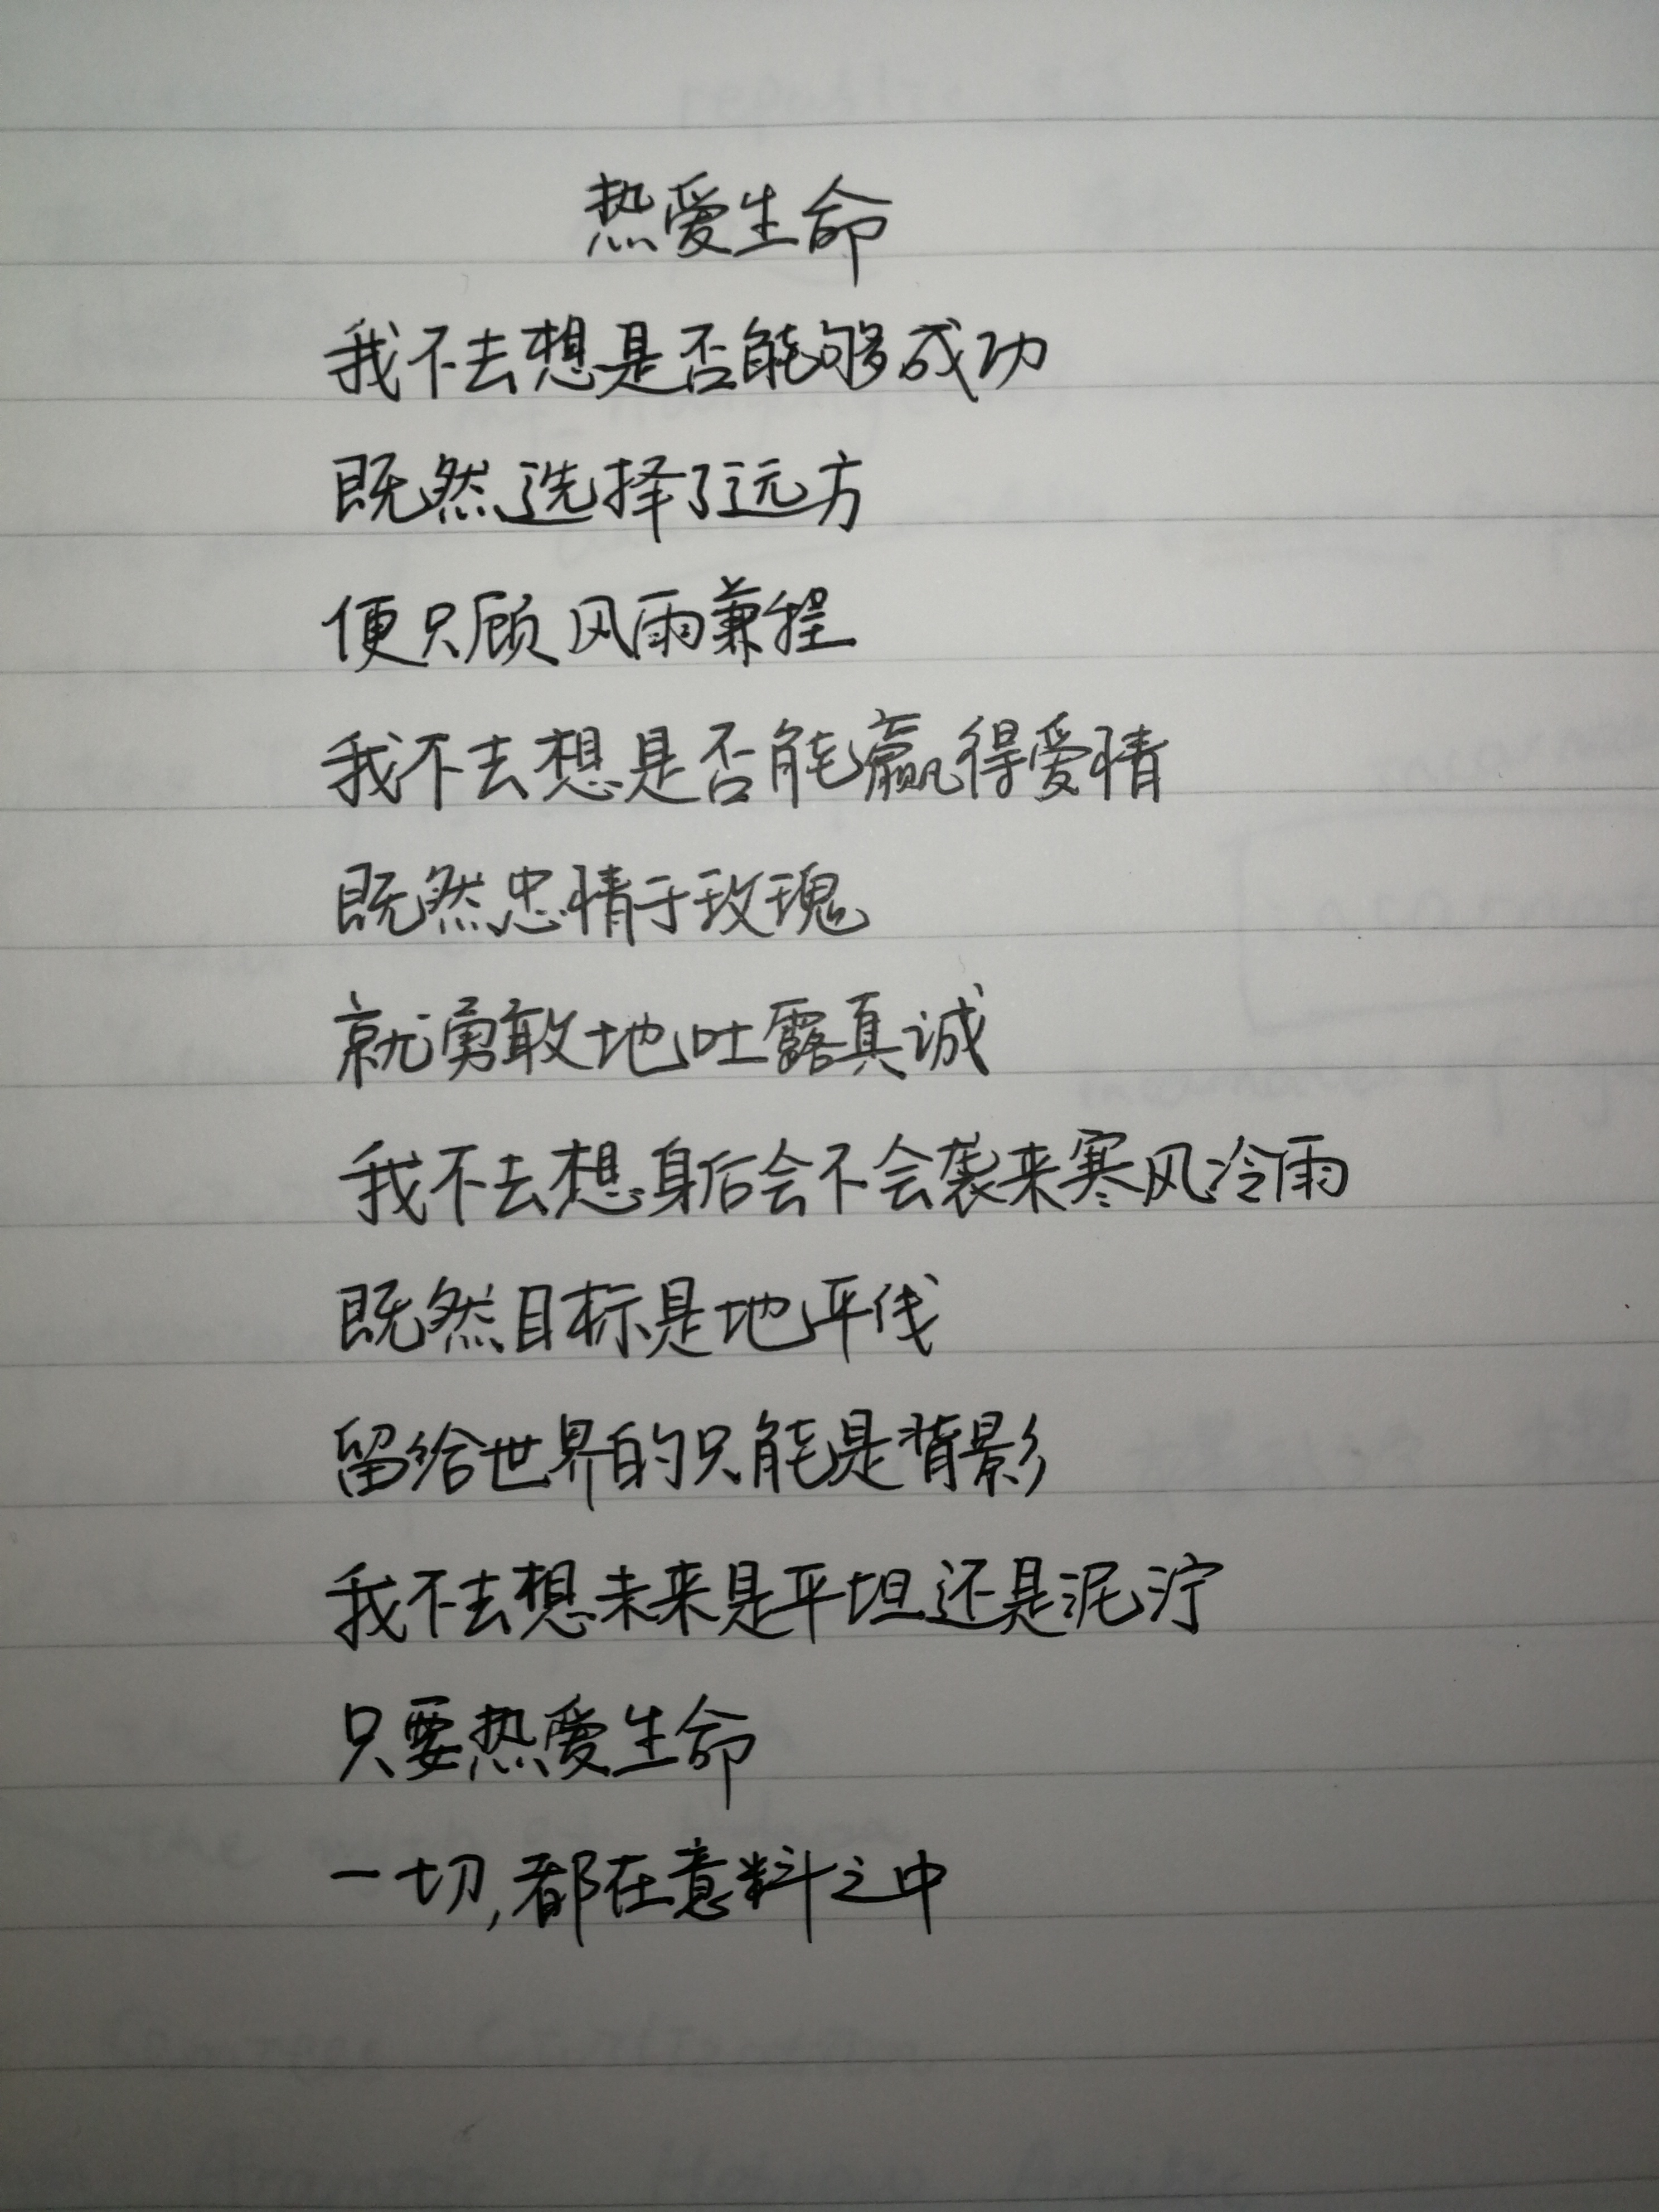 热爱生命
我不去想是否能够成功
既然选择了远方
便只顾风雨兼程
我不去想是否能赢得爱情
既然忠情于玫瑰
就勇敢地吐露真诚
我不去想身后会不会袭来寒风冷雨
既然目标是地平线
留给世界的只能是背影
我不去想未来是平坦还是泥泞
只要热爱生命
一切,都在意料之中